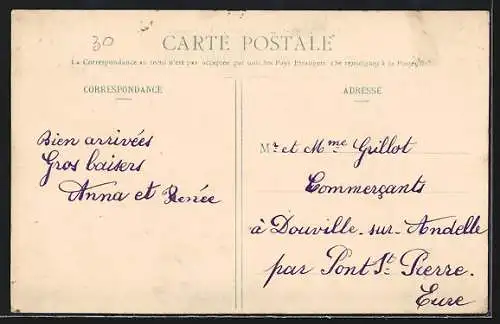 30
CARTE POSTALE
La Correspondance au recto n'est pas acceptée par tous les Pays Etrangers. (Se renseigner à la Poste)
CORRESPONDANCE
ADRESSE
Bien arrivées
Gros baisers
Anna et Renée
Mr et Mme Grillot
Commerçants
à Douville-sur-Andelle
par Pont St Pierre.
Eure